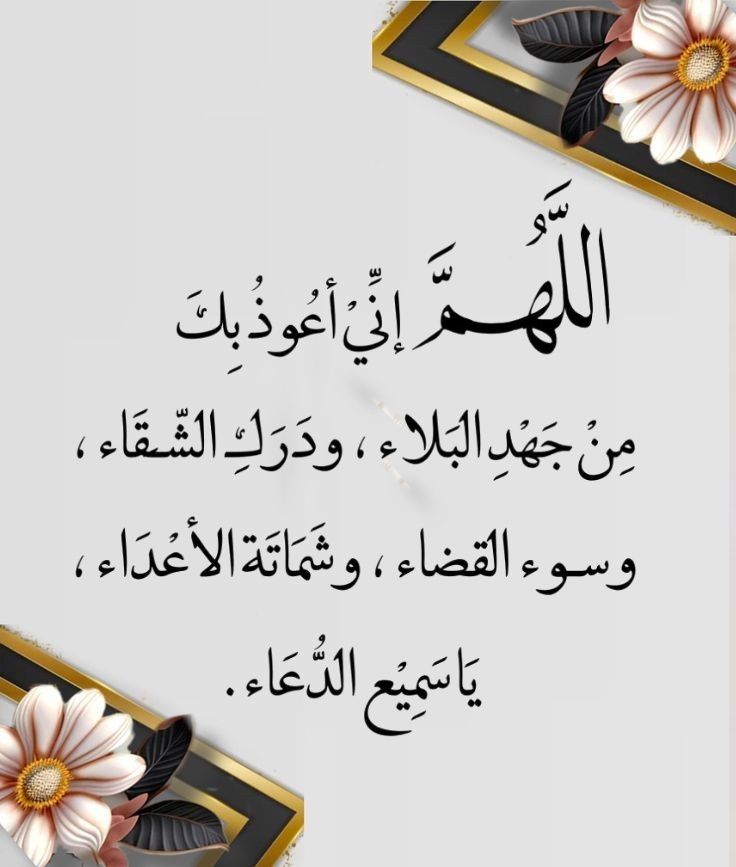 اللَّهُمَّ إنِّيْ أعُوذُ بِكَ
مِنْ جَهْدِ البَلاء ، ودَرَكِ الشّقَاء ،
وسوء القضاء ، وشَمَاتَة الأعْدَاء ،
يَا سَمِيْع الدُّعَاء .